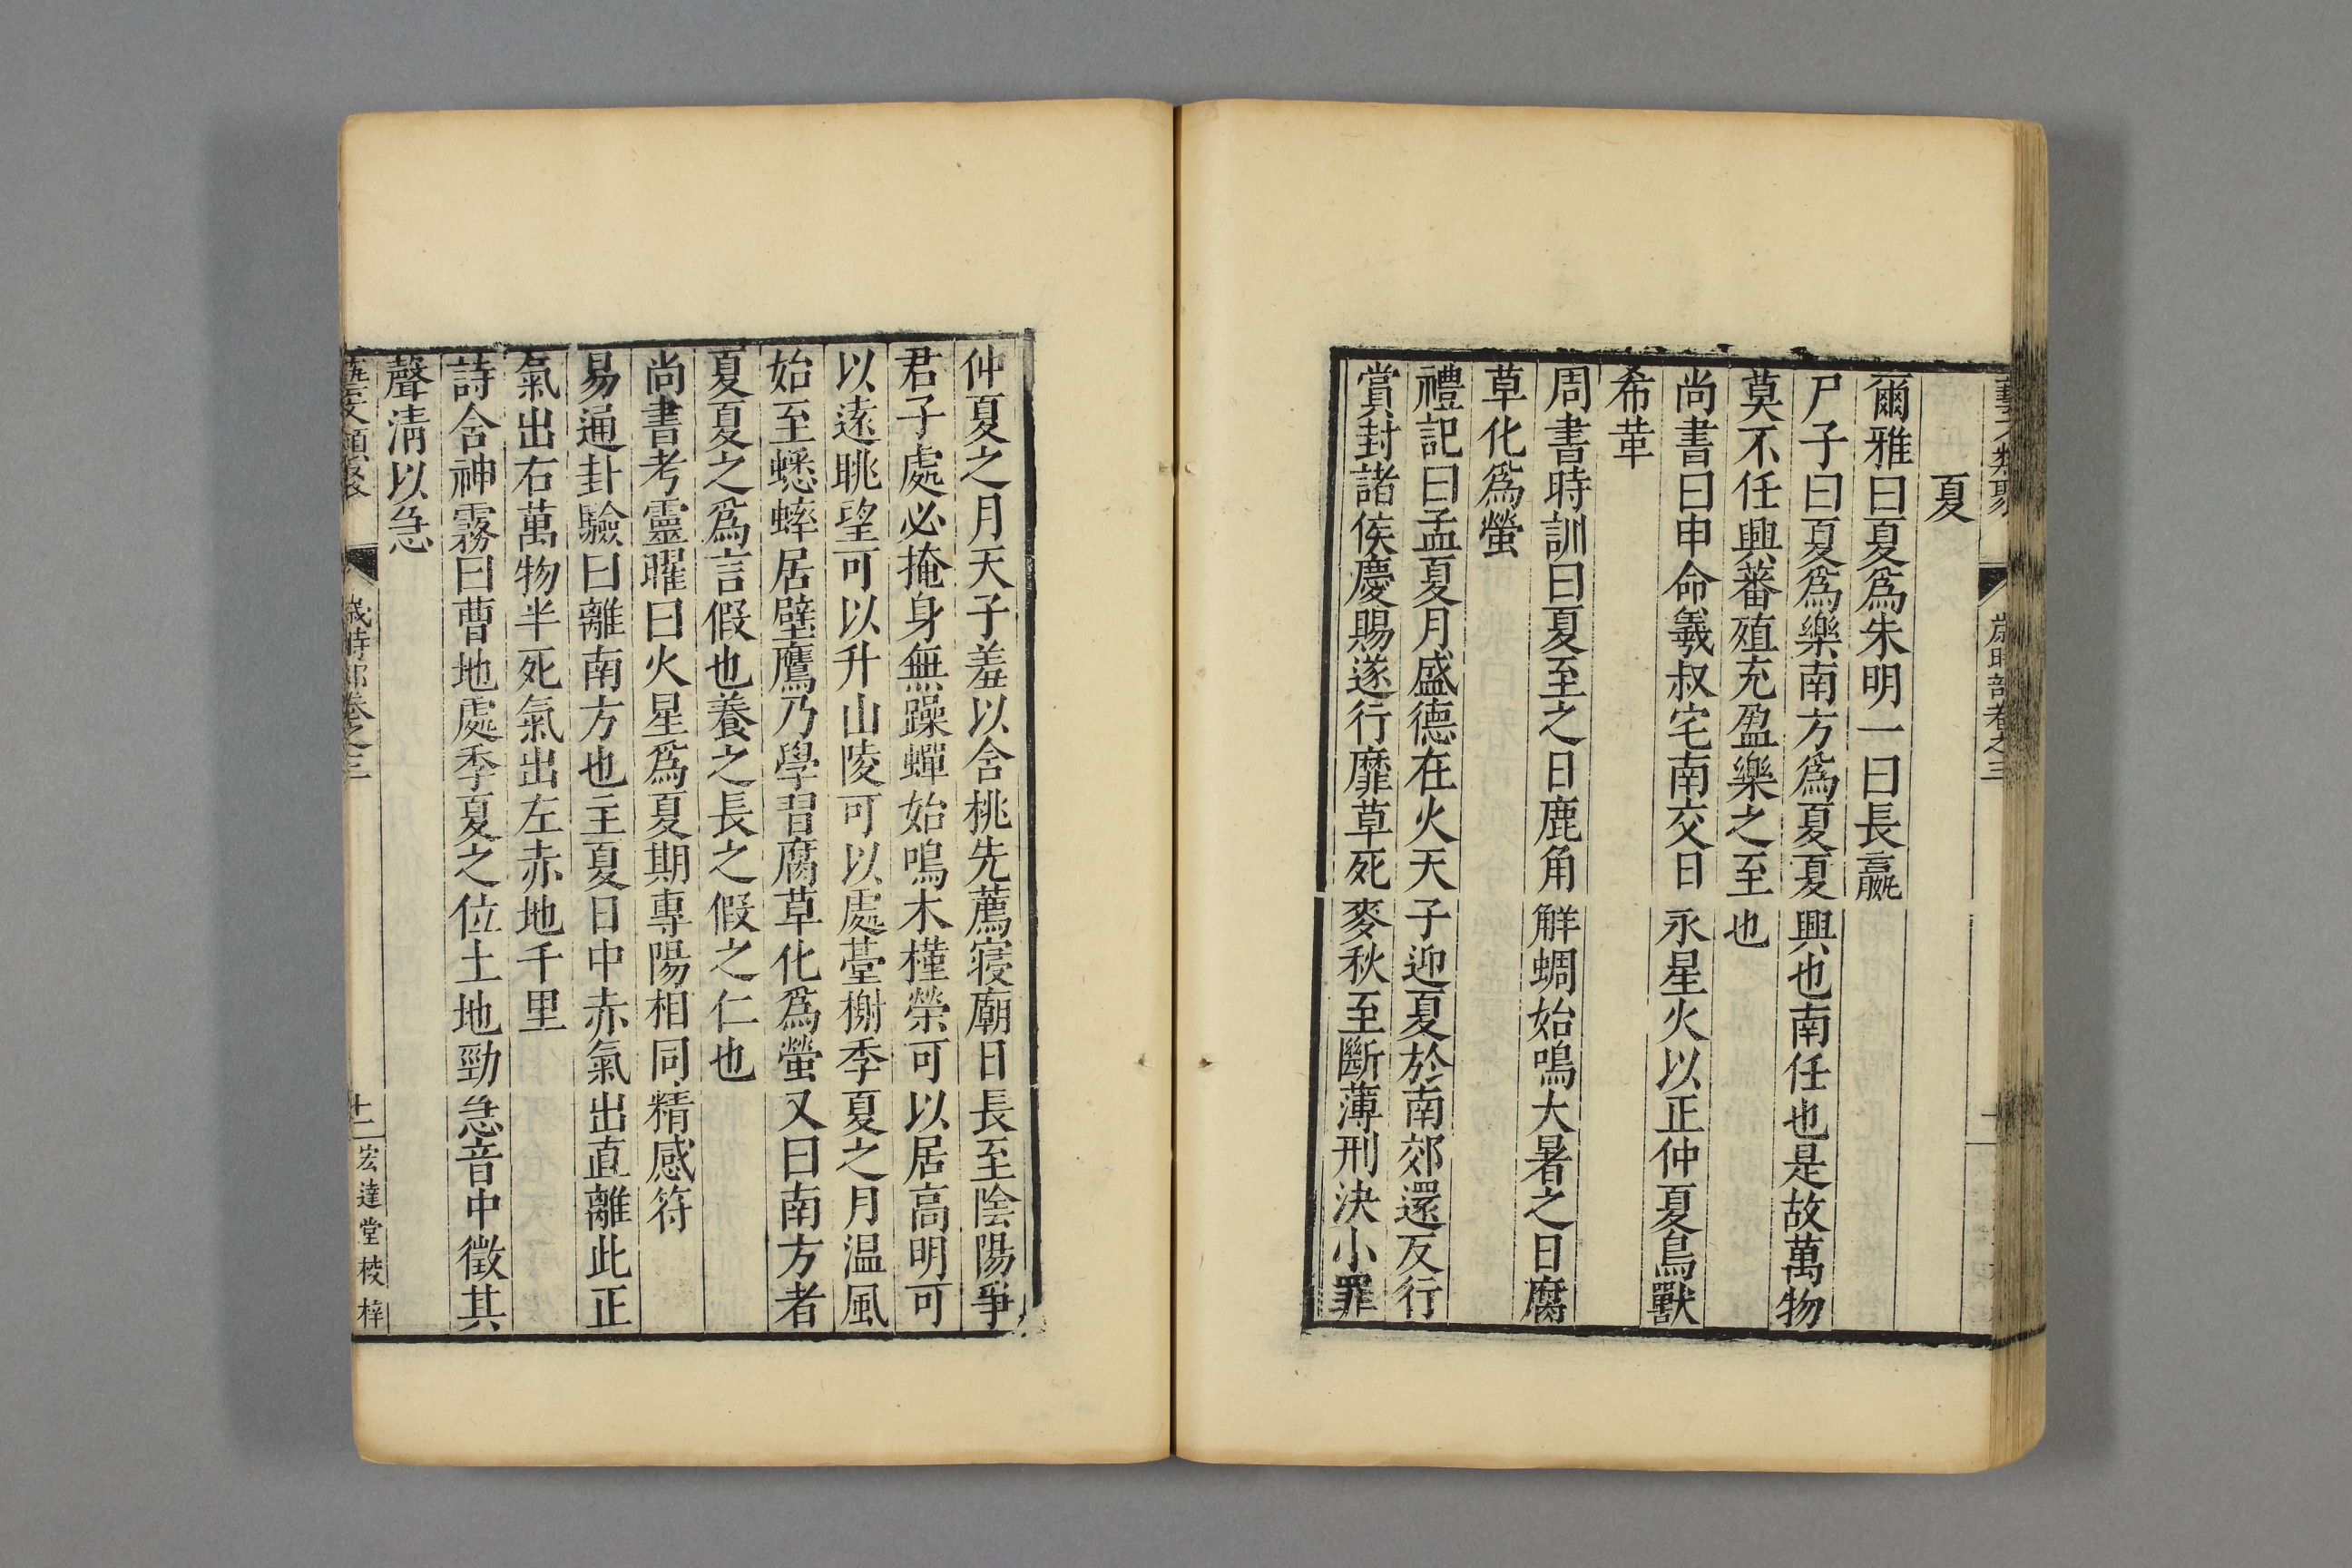 藝文類聚 歲時部卷之三
夏
爾雅曰夏爲朱明一曰長嬴
尸子曰夏爲樂南方爲夏夏興也南任也是故萬物
莫不任興蕃殖充盈樂之至也
尚書曰申命羲叔宅南交日永星火以正仲夏鳥獸
希革
周書時訓曰夏至之日鹿角觧蜩始鳴大暑之日腐
草化爲螢
禮記曰孟夏月盛德在火天子迎夏於南郊還反行
賞封諸侯慶賜遂行靡草死麥秋至斷薄刑決小罪
仲夏之月天子羞以含桃先薦寢廟日長至陰陽爭
君子處必掩身無躁蟬始鳴木槿榮可以居高明可
以遠眺望可以升山陵可以處臺榭季夏之月温風
始至蟋蟀居壁鷹乃學習腐草化爲螢又曰南方者
夏夏之爲言假也養之長之假之仁也
尚書考靈曜曰火星爲夏期專陽相同精感符
易通卦驗曰離南方也主夏日中赤氣出直離此正
氣出右萬物半死氣出左赤地千里
詩含神霧曰曹地處季夏之位土地勁急音中徵其
聲清以急
藝文類聚 歲時部卷之三 十二 宏達堂校梓